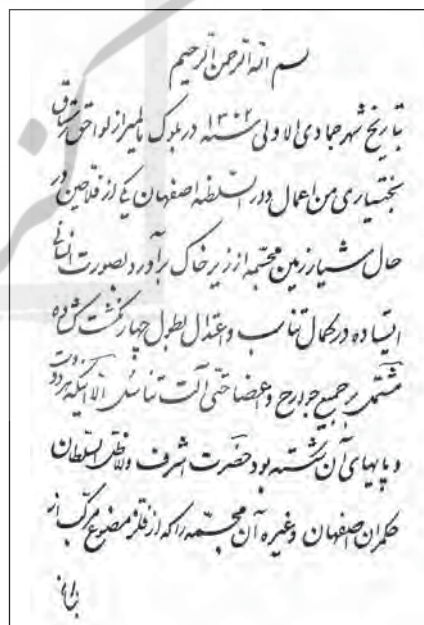 بسم الله الرحمن الرحیم
بتاریخ شهر جمادی الاولی سنه ۱۳۰۲ در بلوک مالمیر از لواحق رستاق
بختیاری من اعمال دارالسلطنه اصفهان یکی از فلاحین در
حال شیار زمین مجسمه از زیر خاک برآورد بصورت انسانی
ایستاده در کمال تناسب و اعتدال بطول چهار انگشت گشاده
مشتمل بر جمیع جوارح و اعضا حتی آلت تناسل الا اینکه هر دو دست
و پایهای آن شکسته بود حضرت اشرف والا ظل السلطان
حکمران اصفهان و غیره آن مجسمه را که از فلز مصنوع مرکب از